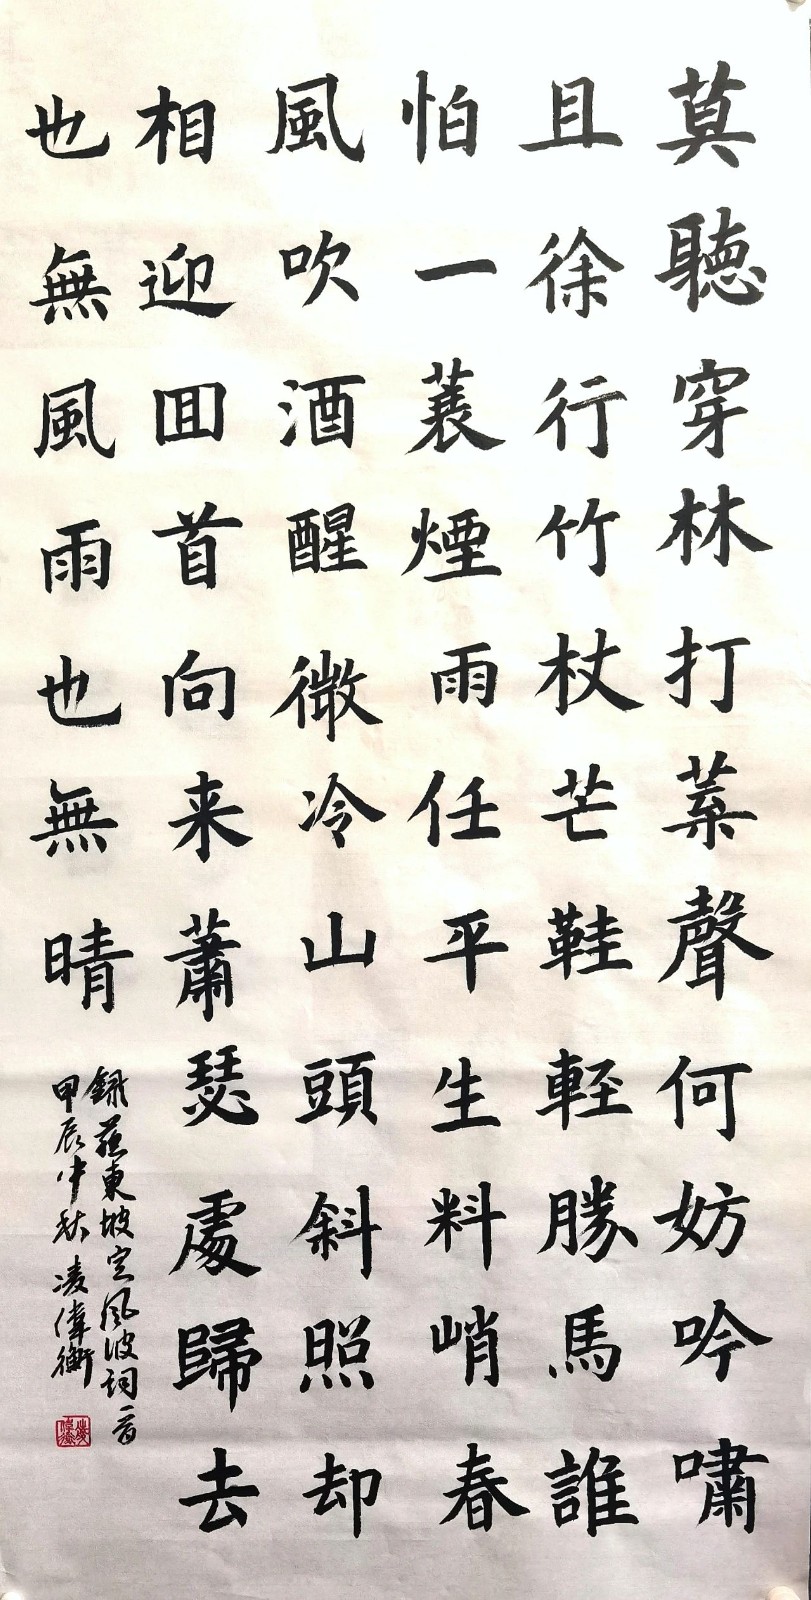 莫聽穿林打葉聲何妨吟嘯
且徐行竹杖芒鞋輕勝馬誰
怕一蓑煙雨任平生料峭春
風吹酒醒微冷山頭斜照却
相迎回首向来蕭瑟處歸去
也無風雨也無晴
錄蘇東坡定風波詞一首
甲辰中秋凌偉衡